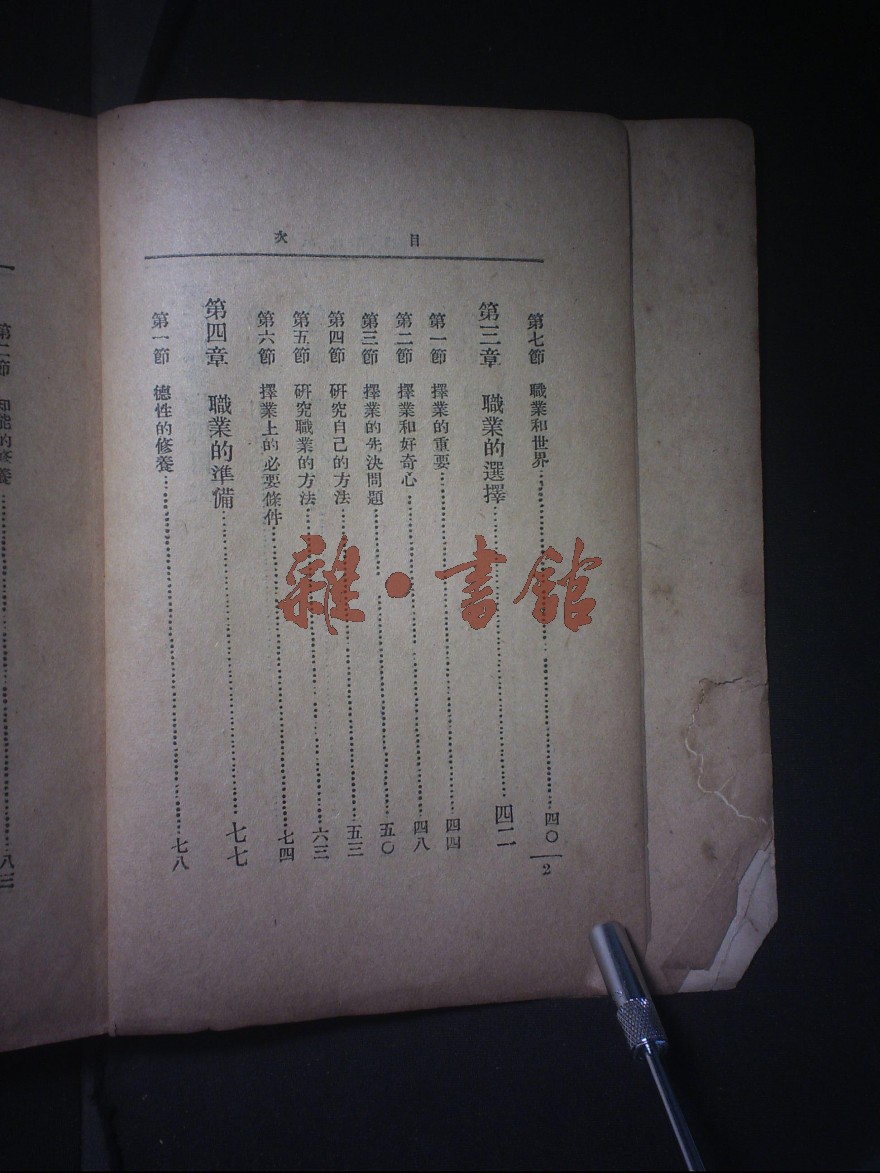 目次
第七節 職業和世界 四〇
第三章 職業的選擇 四二
第一節 擇業的重要 四四
第二節 擇業和好奇心 四八
第三節 擇業的先決問題 五〇
第四節 研究自己的方法 五三
第五節 研究職業的方法 六三
第六節 擇業上的必要條件 七四
第四章 職業的準備 七七
第一節 德性的修養 七八
2
第二節 知能的修養 八三
雜·書館